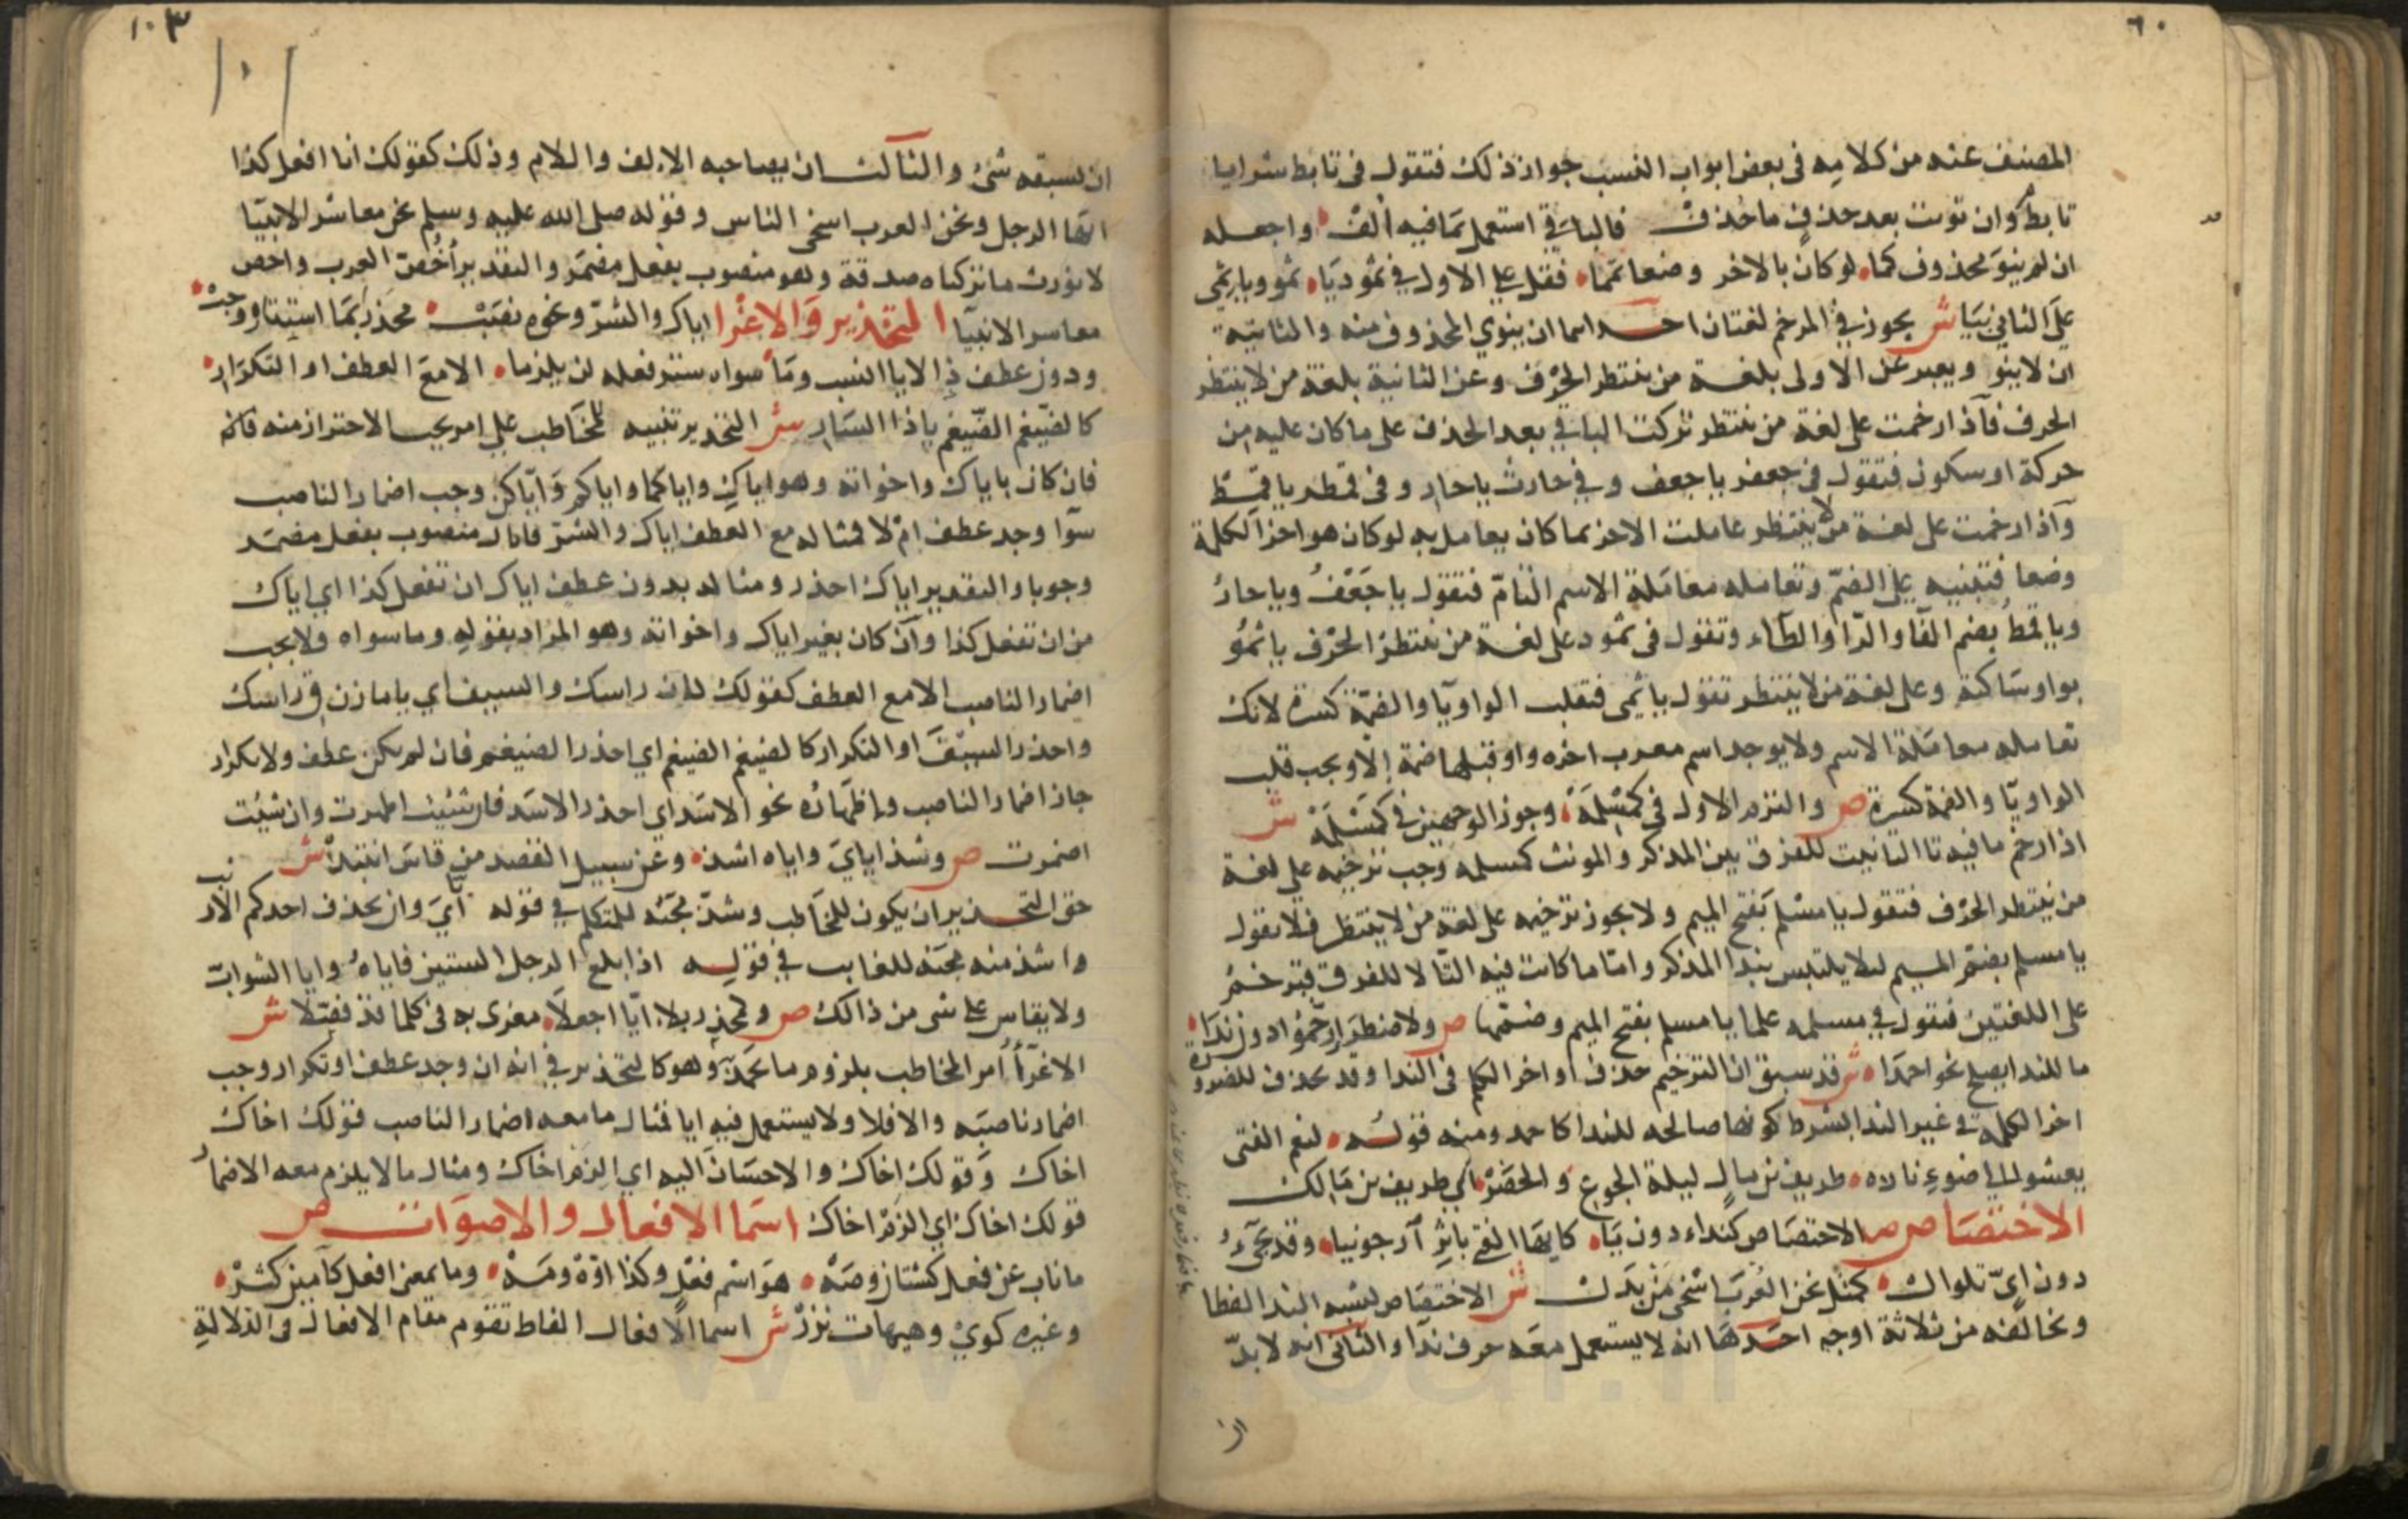 ٦٠
المصنف عنه من كلامه فى بعض ابواب النسب جواز ذلك فتقول فى تابط شرا يا
تابط وان نويت بعد حذف ما حذف فالباقى استعمل بما فيه الف واجعله
ان لم ينو محذوف كما لو كان بالاخر وضعا تمما فقل على الاول فى ثمود يا ثمو ويا ثمى
على الثانى بيا ش يجوز فى المرخم لغتان احداهما ان ينوي المحذوف منه والثانية
ان لا ينو ويعبر عن الاولى بلغة من ينتظر الحرف وعن الثانية بلغة من لا ينتظر
الحرف فاذا رخمت على لغة من ينتظر تركت الباقى بعد الحذف على ما كان عليه من
حركة او سكون فتقول فى جعفر يا جعف وفى حارث يا حار وفى قمطر يا قمط
واذا رخمت على لغة من لا ينتظر عاملت الاخر بما كان يعامل به لو كان هو اخر الكلمة
وضعا فتبنيه على الضم وتعامله معاملة الاسم التام فتقول يا جعف ويا حار
ويا قمط بضم الفا والرا والطاء وتقول فى ثمود على لغة من ينتظر الحرف يا ثمو
بواو ساكنة وعلى لغة من لا ينتظر تقول يا ثمى فتقلب الواو يا والضمة كسرة لانك
تعامله معاملة الاسم ولا يوجد اسم معرب اخره واو قبلها ضمة الا ويجب قلب
الواو يا والضمة كسرة ص والتزم الاول فى كمسلمة وجوز الوجهين فى كمسلمه ش
اذا رخم ما فيه تا التانيث للفرق بين المذكر والمونث كمسلمه وجب ترخيمه على لغة
من ينتظر الحرف فتقول يا مسلم بفتح الميم ولا يجوز ترخيمه على لغة من لا ينتظر فلا تقول
يا مسلم بضم الميم ليلا يلتبس بندا المذكر واما ما كانت فيه التا لا للفرق فيرخم
على اللغتين فتقول فى مسلمه علما يا مسلم بفتح الميم وضمها ص ولاضطرار رخموا دون ندا
ما للندا يصلح نحو احمدا ش قد سبق ان الترخيم حذف اواخر الكلم فى الندا وقد يحذف للضرورة
اخر الكلمه فى غير الندا بشرط كونها صالحه للندا كاحمد ومنه قوله لنعم الفتى
يعشو الى ضوء ناره طريف بن مال ليلة الجوع والخصر اى طريف بن مالك
الاختصاص ص الاختصاص كنداء دون يا كايها الفتى باثر ارجونيا وقد يجىء
دون اى تلو ال كمثل نحن العرب اسخى من بذل ش الاختصاص يشبه الندا لفظا
ويخالفه من ثلاثة اوجه احدها انه لا يستعمل معه حرف ندا والثانى انه لا بد
ان
١٠٣
١٠١
ان يسبقه شى والثالث ان يصاحبه الالف واللام وذلك كقولك انا افعل كذا
ايها الرجل ونحن العرب اسخى الناس وقوله صلى الله عليه وسلم نحن معاشر الانبيا
لا نورث ما تركناه صدقة وهو منصوب بفعل مضمر والتقدير اخص العرب واخص
معاشر الانبيا التحذير والاغرا اياك والشر ونحوه نصب محذر بما استتاره وجب
ودون عطف ذا لايا انسب وما سواه ستر فعله لن يلزما الا مع العطف او التكرار
كالضيغم الضيغم يا ذا السار ش التحذير تنبيه المخاطب على امر يجب الاحتراز منه فانه
فان كان باياك واخواته وهو اياك واياكما واياكم واياكن وجب اضمار الناصب
سوا وجد عطف ام لا فمثاله مع العطف اياك والشر فاياك منصوب بفعل مضمر
وجوبا والتقدير اياك احذر ومثاله بدون عطف اياك ان تفعل كذا اي اياك
من ان تفعل كذا وان كان بغير اياك واخواته وهو المراد بقوله وما سواه ولا يجب
اضمار الناصب الا مع العطف كقولك مازن راسك والسيف اي يا مازن ق راسك
واحذر السيف او التكرار كالضيغم الضيغم اي احذر الضيغم فان لم يكن عطف ولا تكرار
جاز اضمار الناصب واظهاره نحو الاسد اي احذر الاسد فان شئت اظهرت وان شئت
اضمرت ص وشذ اياي واياه اشذ وعن سبيل القصد من قاس انتبذ ش
حق التحذير ان يكون للمخاطب وشذ مجئه للمتكلم فى قوله اياي وان يحذف احدكم الارنب
واشذ منه مجئه للغايب فى قوله اذا بلغ الرجل الستين فاياه وايا الشواب
ولا يقاس على شى من ذالك ص وكمحذر بلا ايا اجعلا مغرى به فى كل ما قد فصلا ش
الاغرا امر المخاطب بلزوم ما يحمد وهو كالتحذير فى انه ان وجد عطف او تكرار وجب
اضمار ناصبه والا فلا ولا يستعمل فيه ايا فمثال ما معه اضمار الناصب قولك اخاك
اخاك وقولك اخاك والاحسان اليه اي الزم اخاك ومثال ما لا يلزم معه الاضمار
قولك اخاك اي الزم اخاك اسما الافعال والاصوات ص
ما ناب عن فعل كشتان وصه هو اسم فعل وكذا اوه ومه وما بمعنى افعل كامين كثر
وغيره كوي وهيهات نزر ش اسما الافعال الفاظ تقوم مقام الافعال فى الدلالة